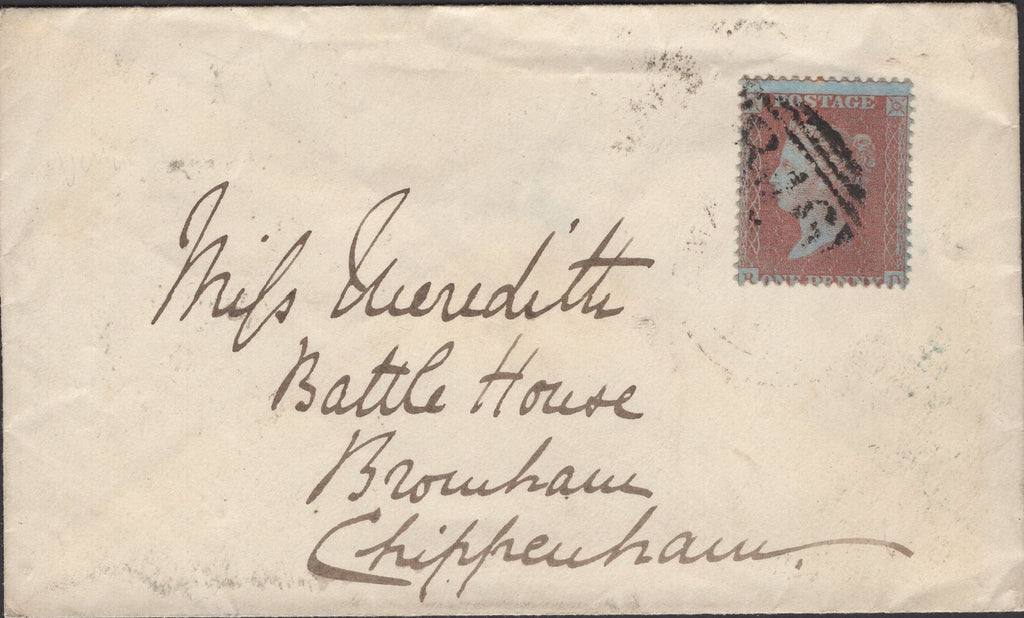 POSTAGE
R ONE PENNY D
Miſs Meredith
Battle House
Bromham
Chippenham.